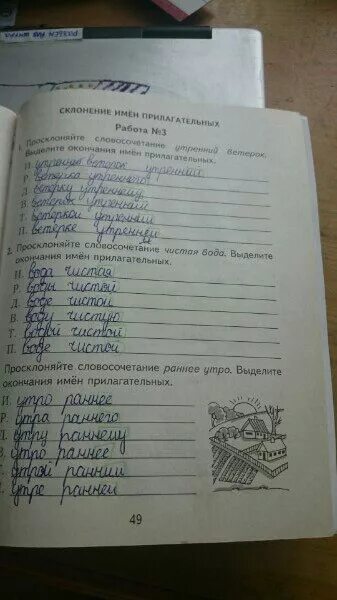 СКЛОНЕНИЕ ИМЁН ПРИЛАГАТЕЛЬНЫХ
Работа №3
1. Просклоняйте словосочетание утренний ветерок.
Выделите окончания имён прилагательных.
И. утренний ветерок утренний
Р. ветерка утреннего
Д. ветерку утреннему
В. ветерок утренний
Т. ветерком утренним
П. ветерке утреннем
2. Просклоняйте словосочетание чистая вода. Выделите
окончания имён прилагательных.
И. вода чистая
Р. воды чистой
Д. воде чистой
В. воду чистую
Т. водой чистой
П. воде чистой
Просклоняйте словосочетание раннее утро. Выделите
окончания имён прилагательных.
И. утро раннее
Р. утра раннего
Д. утру раннему
В. утро раннее
Т. утрой ранний
П. утре ранней
49